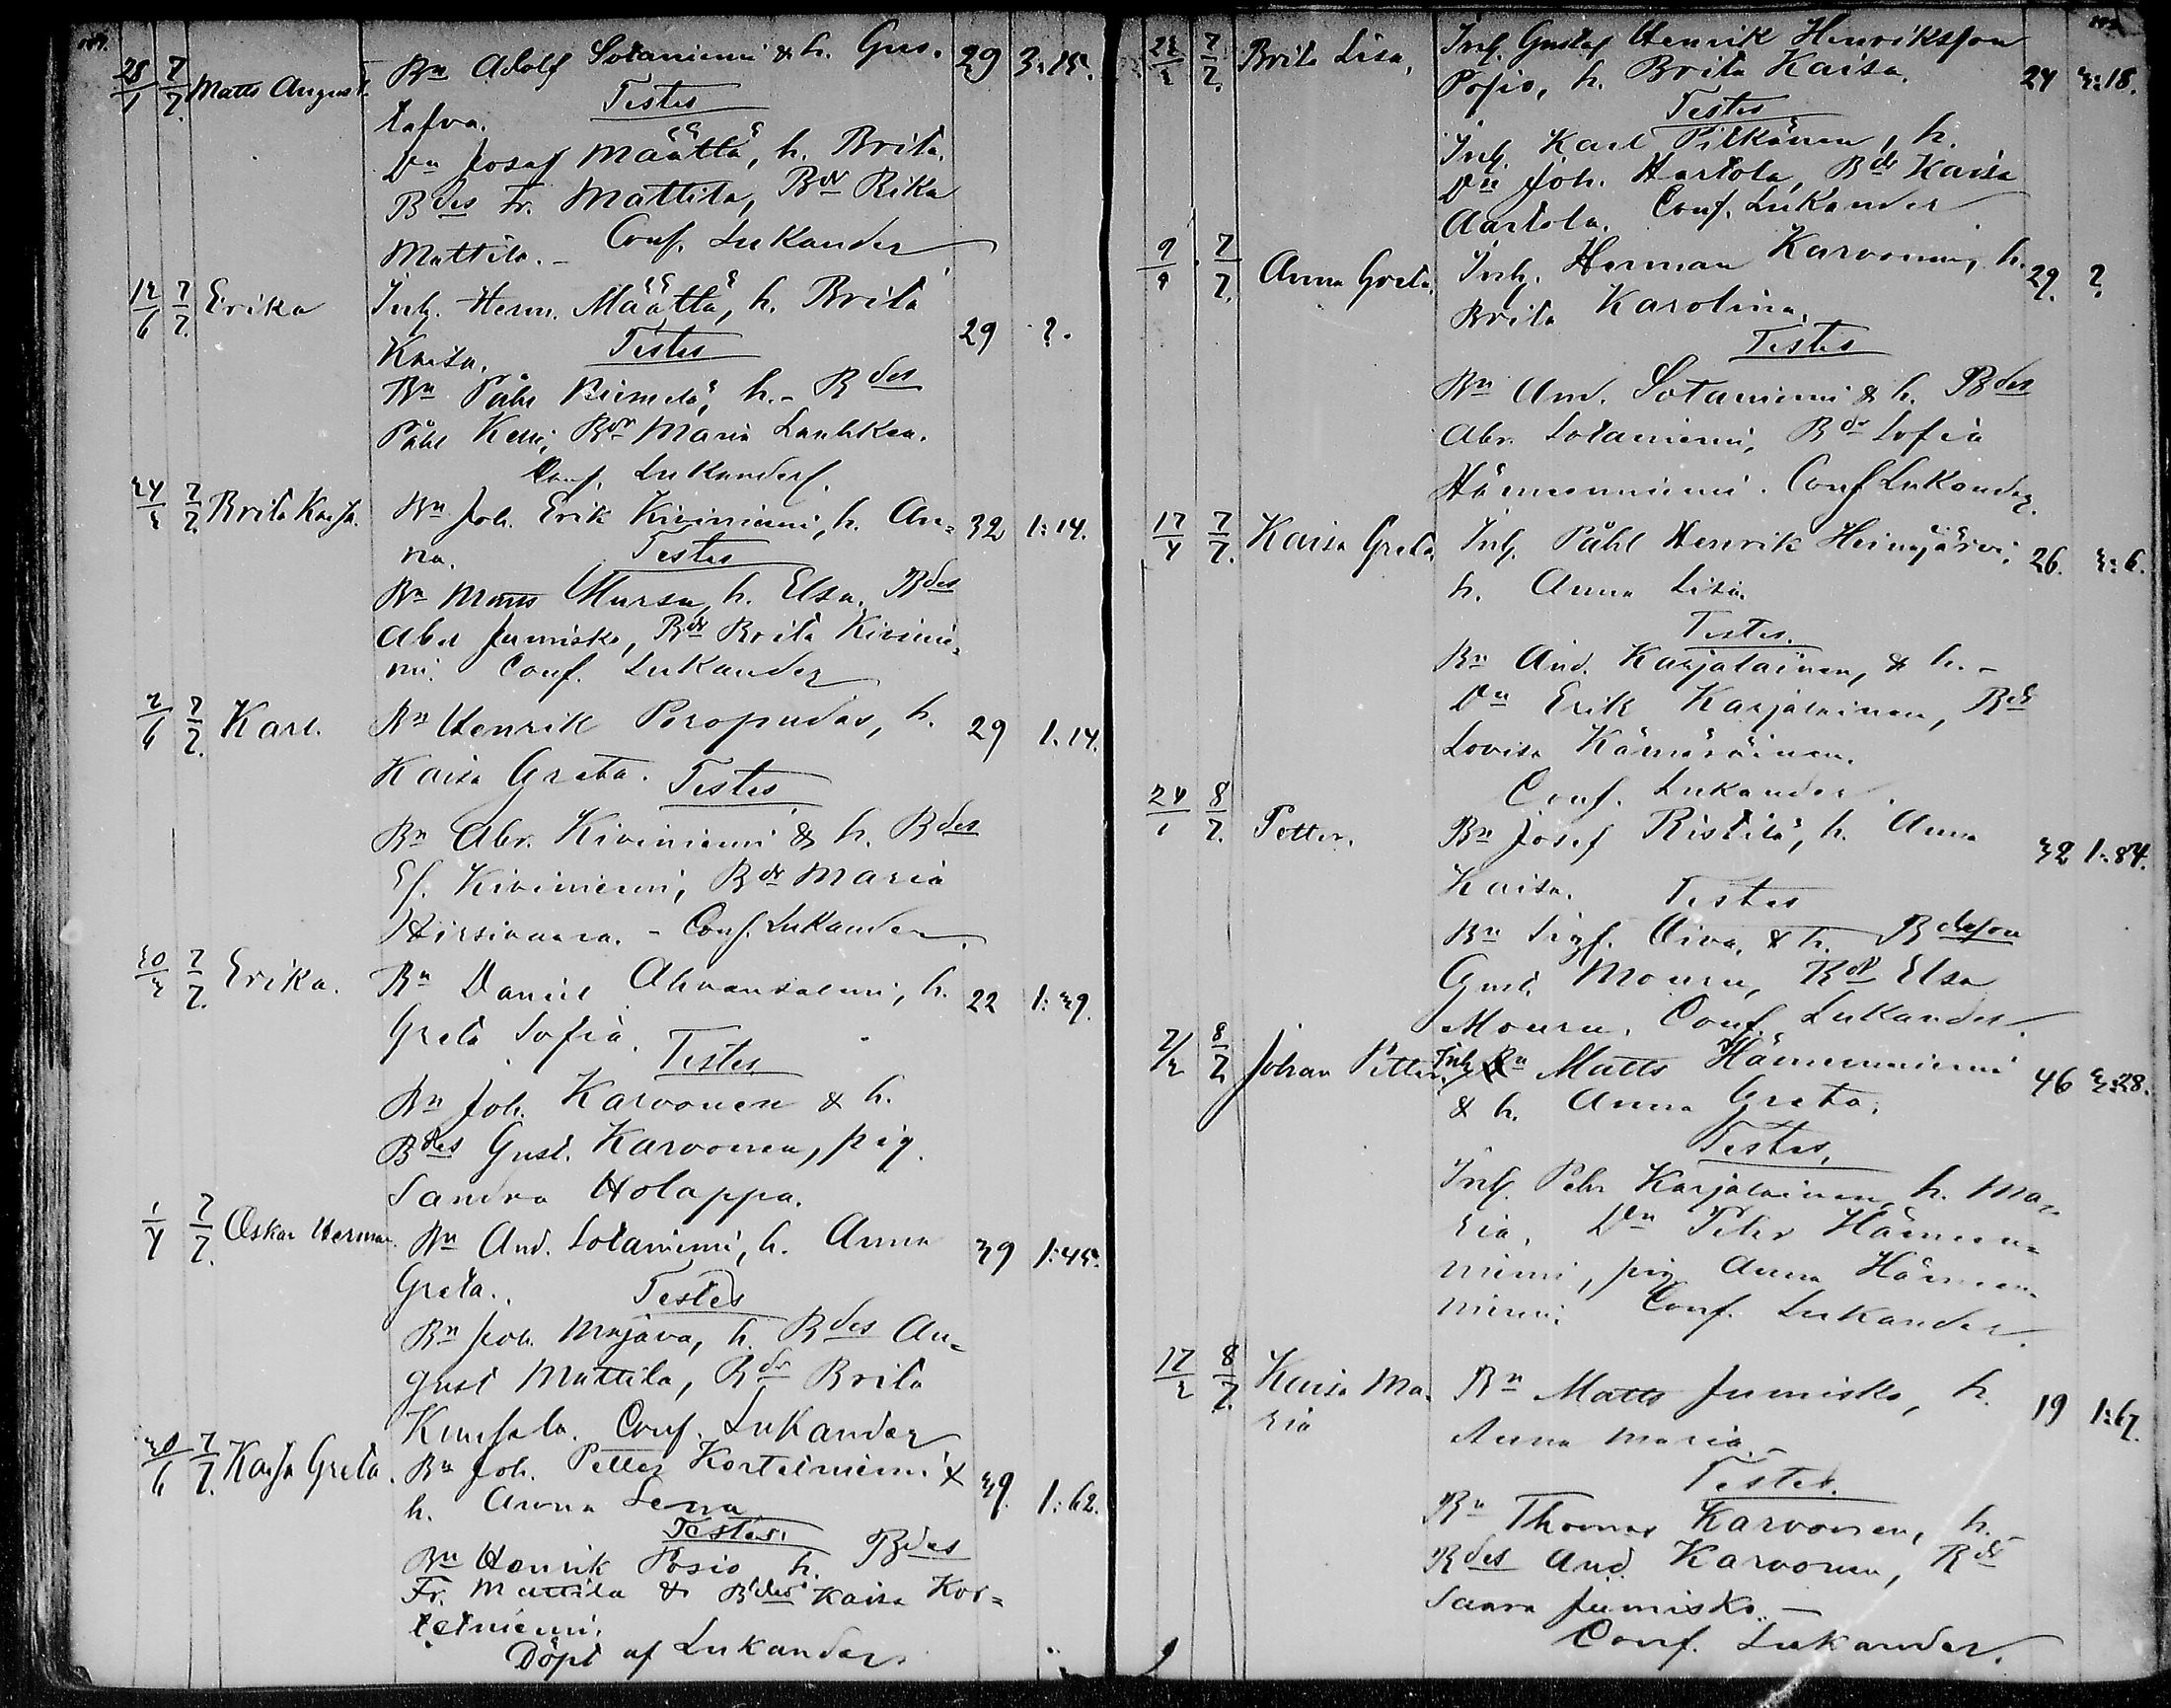 28/1 7/7 Matts August. Bn Adolf Sotaniemi & h. Gus. 29 3:15.
tafva. Testes
Dn Josef Määttä, h. Brita.
Bdes Fr. Mattila, Bdr Rika
Mattila. - Conf. Lukander
12/6 7/7. Erika Inh. Herm. Määttä, h. Brita 29 ?.
Kaisa. Testes
Bn Påhl Niemelä, h. - Bdes
Påhl Keni, Bdr Maria
Conf. Lukander.
24/2 7/7. Brita Kaisa. Bn Joh. Erik Kiviniemi, h. An= 32 1:14.
na. Testes
Bn Matts Mursu, h. Elsa. Bdes
Abel Jumisko, Bdr Brita Kivinie=
mi. Conf. Lukander
2/6 7/7. Karl. Bn Henrik Poropudas, h. 29 1.14.
Kaisa Greta. Testes
Bn Abr. Kiviniemi & h. Bdes
Es. Kiviniemi, Bdr Maria
Hirsivaara. - Conf. Lukander
20/2 7/7. Erika. Bn Daniel Ahvensalmi, h. 22 1:29.
Greta Sofia. Testes
Bn Joh. Karvonen & h.
Bdes Gust. Karvonen, pig.
Sandra Holappa.
1/4 7/7. Oskar Herman. Bn And. Sotaniemi, h. Anna 39 1:45.
Greta. Testes
Bn Joh. Majava, h. Bdes Au=
gust Mattila, Bdr Brita
Conf. Lukander
20/6 7/7. Kaisa Greta. Bn Joh. Petter Kortetniemi & 39. 1:62.
h. Anna Lena
Testes.
Bn Henrik Posio h. Bdes
Fr. Mattila & Bdes Kaisa Kor=
tetniemi.
Döpt af Lukander.
22/2 7/7. Brita Lisa, Inh. Gustaf Henrik Henriksson 24 2:18.
Posio, h. Brita Kaisa.
Testes
Inh. Karl Pitkänen, h.
Dn Joh. Hartola, Bdr Kaisa
Aartola. Conf. Lukander
9/9 7/7. Anna Greta. Inh. Herman Karvonen, h. 29. ?
Brita Karolina.
Testes
Bn And. Sotaniemi & h. Bdes
Abr. Sotaniemi, Bdr Sofia
Hämeenniemi. Conf Lukander.
17/4 7/7. Kaisa Greta. Inh. Påhl Henrik Heinijärvi, 26. 2:6.
h. Anna Lisa.
Testes.
Bn And. Karjalainen, & h. -
Dn Erik Karjalainen, Bdr
Lovisa Kämäräinen.
Conf. Lukander.
24/1 8/7. Petter. Bn Josef Ristilä, h. Anna 32 1:84.
Kaisa. Testes
Bn Sigf. Oiva, & h. Bdeson
Gust. Mouru, Bdr Elsa
Mouru. Conf. Lukander.
2/2 8/7. Johan Petter. Inh. Bn Matts Hämeenniemi 46 2:28.
& h. Anna Greta.
Testes.
Inh. Pehr Karjalainen, h. Ma=
ria, Dn Peter Hämeen=
niemi, pig Anna Hämeen=
niemi. Conf. Lukander
17/2 8/7. Kaisa Ma= Bn Matts Jumisko, h. 19 1:67.
ria Anna Maria. -
Testes.
Bn Thomas Karvonen, h. -
Bdes And. Karvonen, Bdr
Saara Jumisko. -
Conf. Lukander.